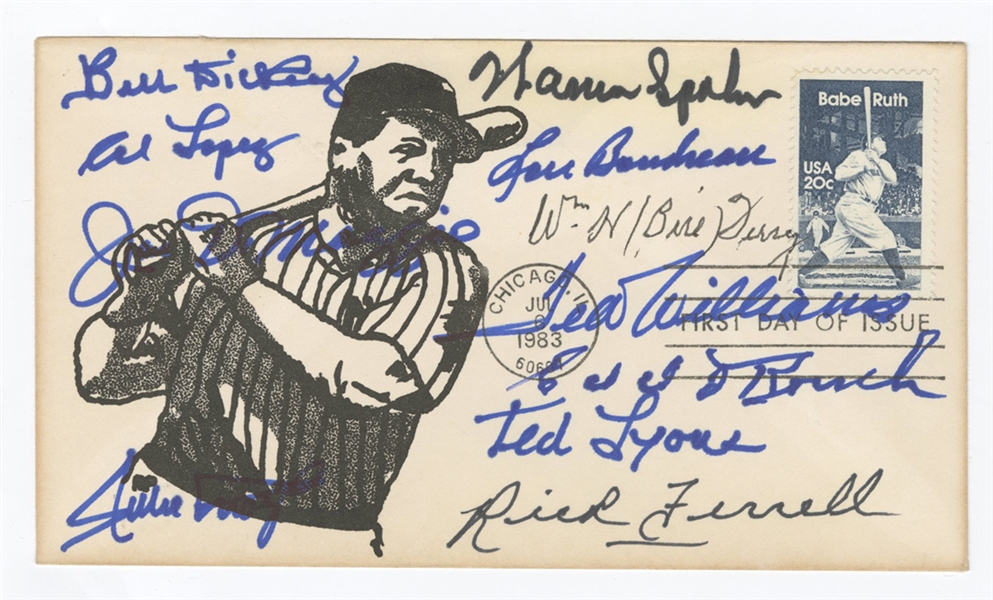 Bill Dickey
Al Lopez
Joe DiMaggio
Warren Spahn
Lou Boudreau
Wm H (Bill)
Babe Ruth
USA
20c
CHICAGO, IL
JUL
6
1983
FIRST DAY OF ISSUE
Ted Williams
Edd J Roush
Ted Lyons
Rick Ferrell